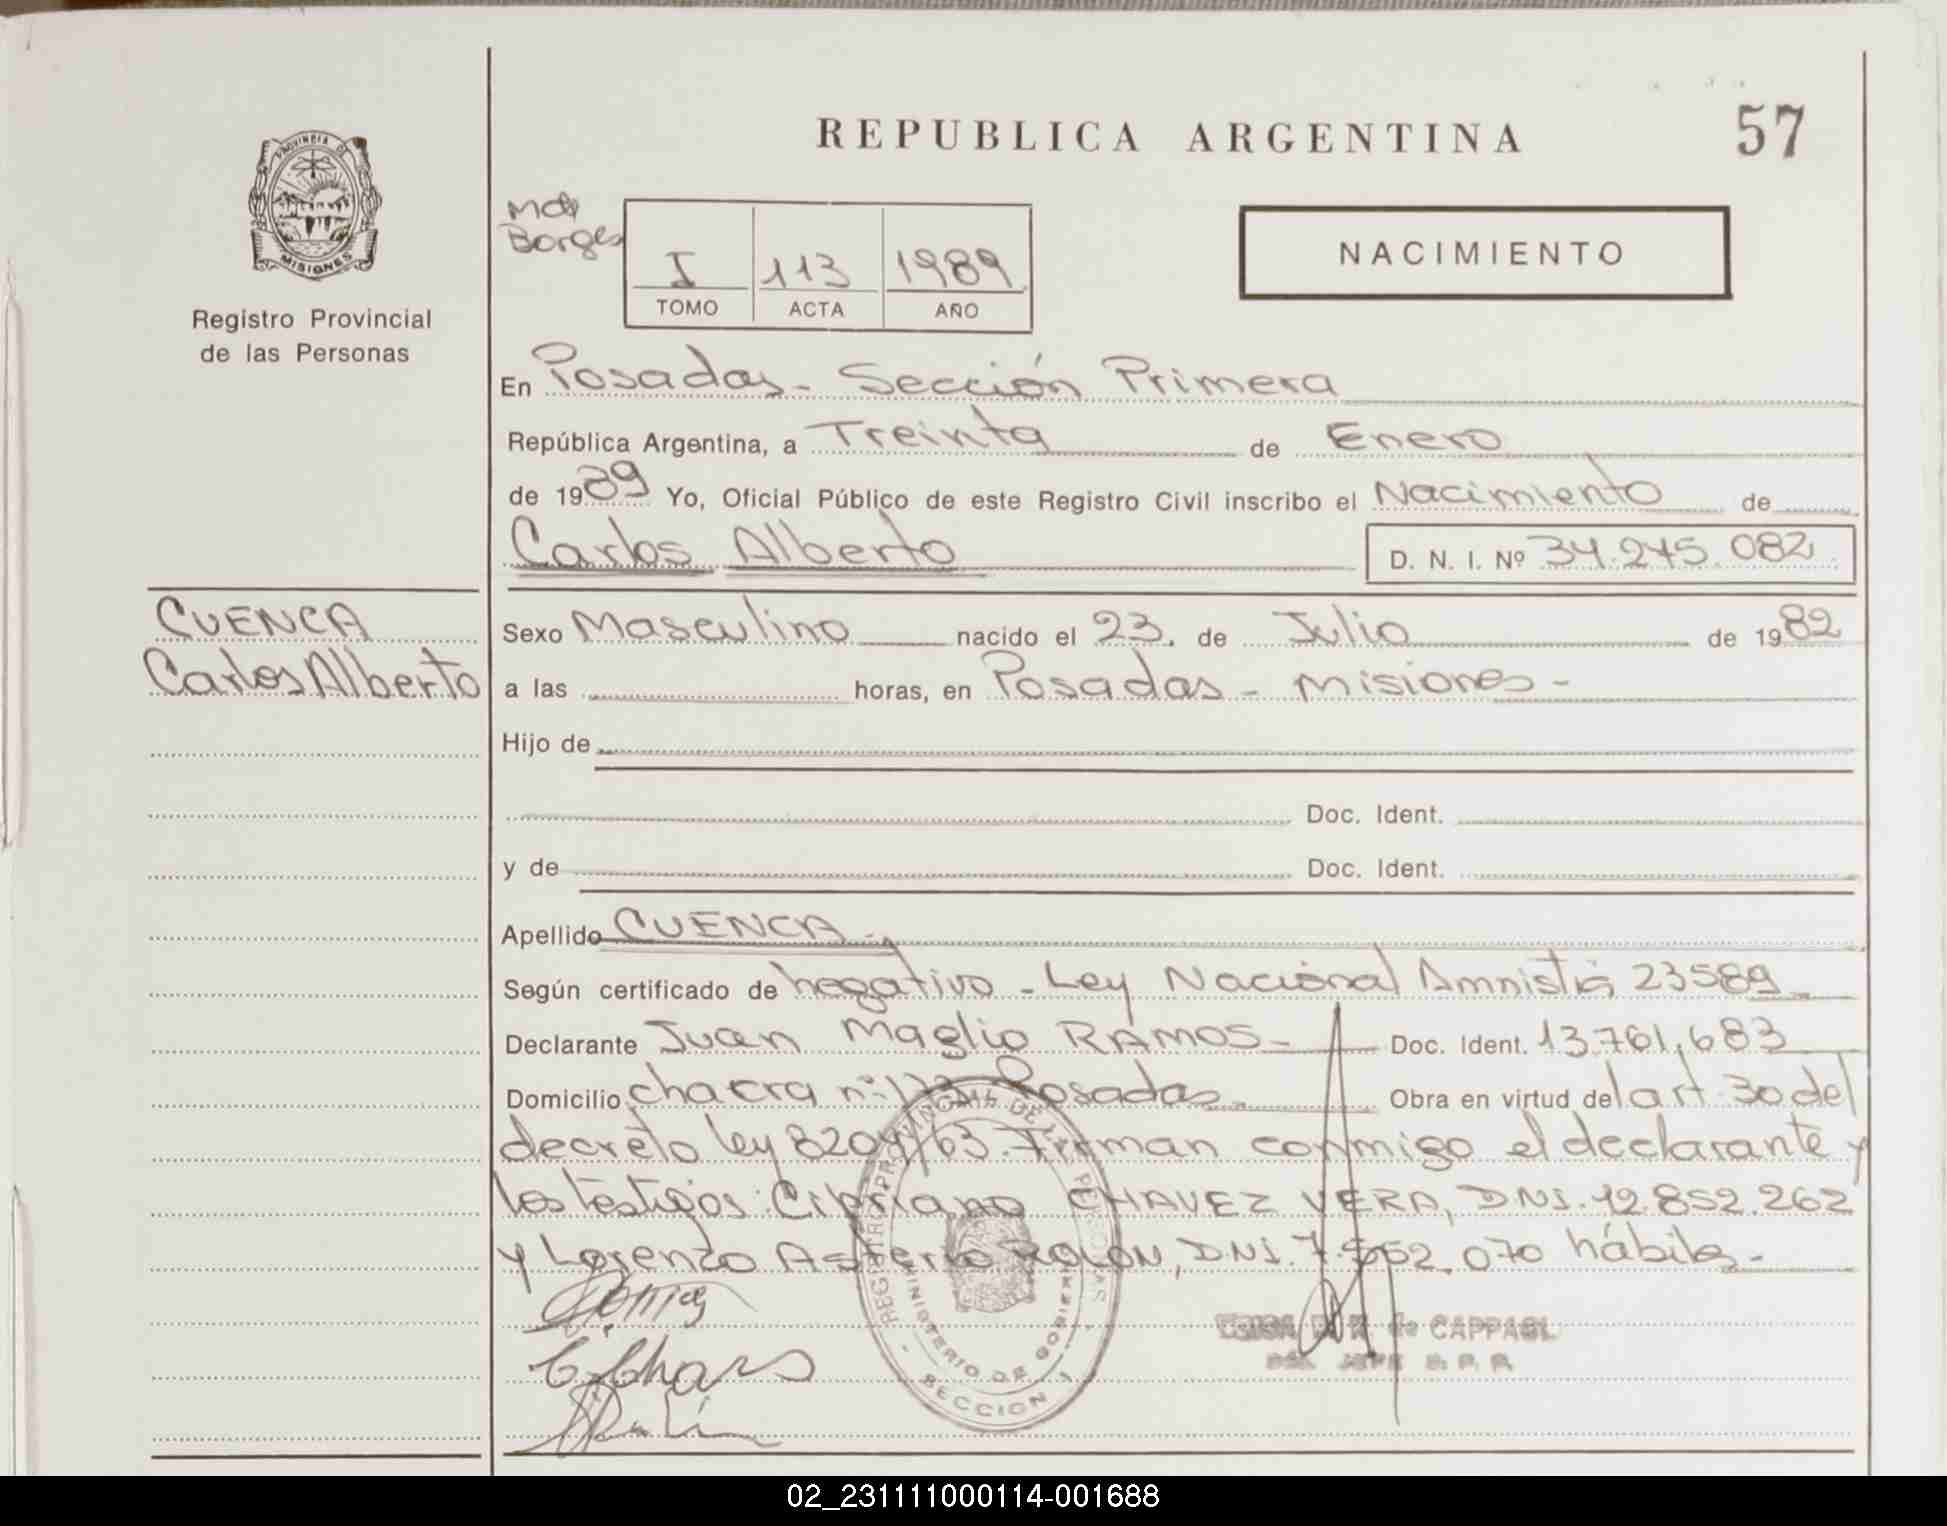 REPUBLICA ARGENTINA
57
PROVINCIA DE
MISIONES
Registro Provincial
de las Personas
Borges
I 113 1989
TOMO ACTA AÑO
NACIMIENTO
En Posadas - Sección Primera
República Argentina, a Treinta de Enero
de 1989 Yo, Oficial Público de este Registro Civil inscribo el Nacimiento de
Carlos Alberto D. N. I. Nº 34.245.082
CUENCA
Carlos Alberto
Sexo Masculino nacido el 23. de Julio de 1982
a las horas, en Posadas - Misiones -
Hijo de
Doc. Ident.
y de Doc. Ident.
Apellido CUENCA -
Según certificado de negativo - Ley Nacional Amnistía 23589
Declarante Juan Maglio RAMOS - Doc. Ident. 13.761.683
Domicilio chacra nº Posadas - Obra en virtud del art 30 del
decreto ley 8204/63. Firman conmigo el declarante y
los testigos: Cipriano CHAVEZ VERA, DNI. 12.852.262
y Lorenzo Asterio DNI. 7.552.070 hábiles -
REGISTRO PROVINCIAL DE LAS PERSONAS
MINISTERIO DE GOBIERNO
- SECCION 1 -
de CAPPAGLI
JEFE
02_231111000114-001688